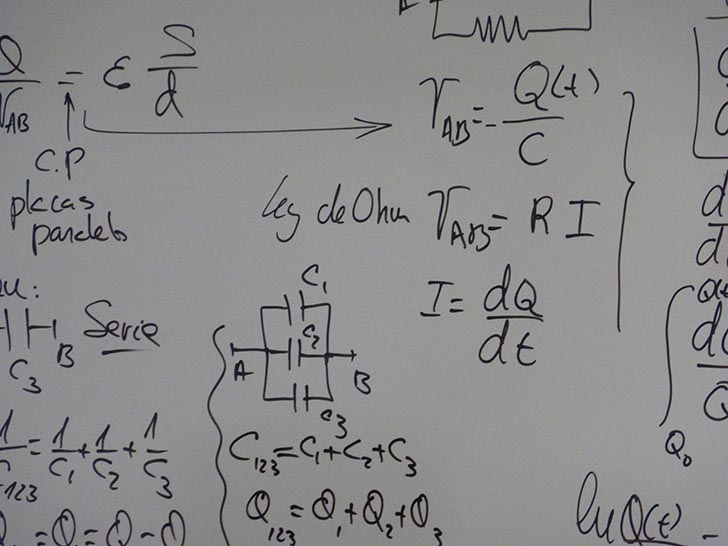 Q/V_AB = ε S/d
C.P
placas
paralelas
V_AB = - Q(t)/C
Ley de Ohm V_AB = R I
I = dQ/dt
C3 B Serie
1/C123 = 1/C1 + 1/C2 + 1/C3
A C1 C2 C3 B
C123 = C1 + C2 + C3
Q123 = Q1 + Q2 + Q3
Q0
ln Q(t)